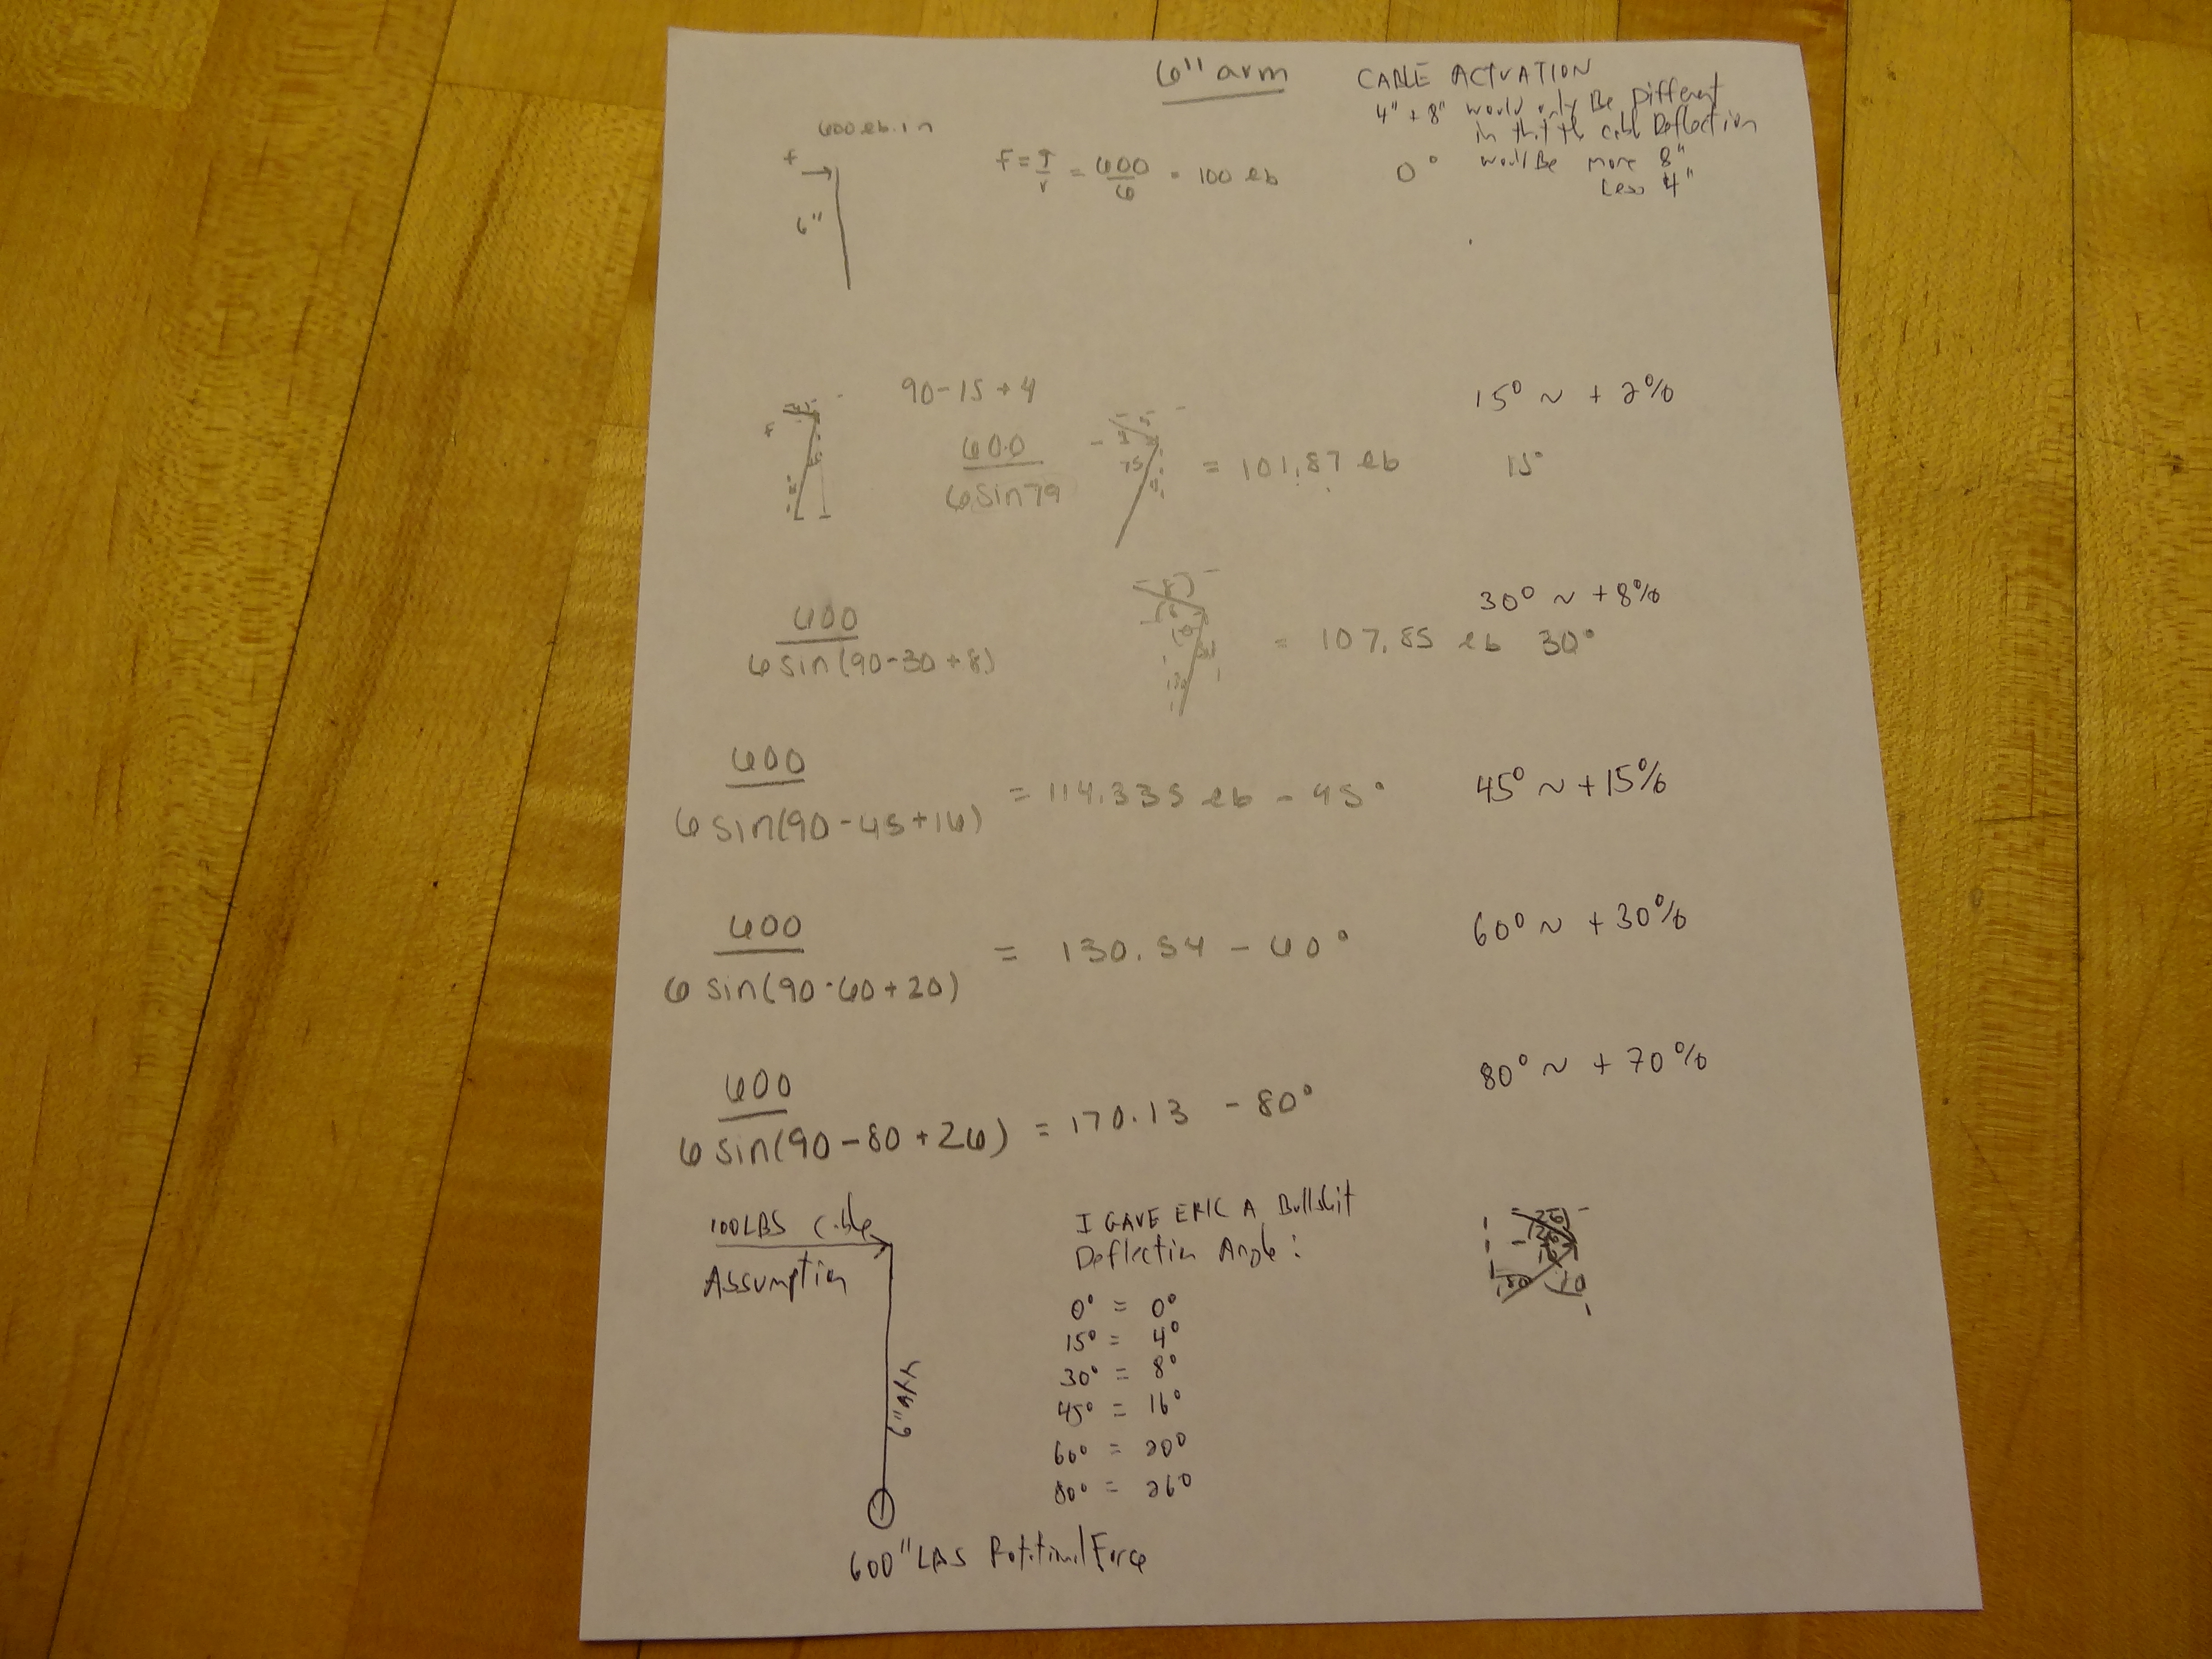 6" arm
CABLE ACTVATION
4" + 8" would only Be Different
in that th cabl Deflection
would Be more 8"
Less 4"
600 lb.in
F
6"
F = T/r = 600/6 = 100 lb
0°
90-15+4
15° ~ +2%
F
600
6 sin 79
75
= 101.87 lb
15°
30° ~ +8%
600
6 sin(90-30+8)
= 107.85 lb 30°
600
6 sin(90-45+16)
= 114.335 lb - 45°
45° ~ +15%
600
6 sin(90-60+20)
= 130.54 - 60°
60° ~ +30%
600
6 sin(90-80+26)
= 170.13 - 80°
80° ~ +70%
100LBS Cable
Assumption
6" Arm
600"LBS Rotational Force
I GAVE ERIC A Bullshit
Deflection Angle:
0° = 0°
15° = 4°
30° = 8°
45° = 16°
60° = 20°
80° = 26°